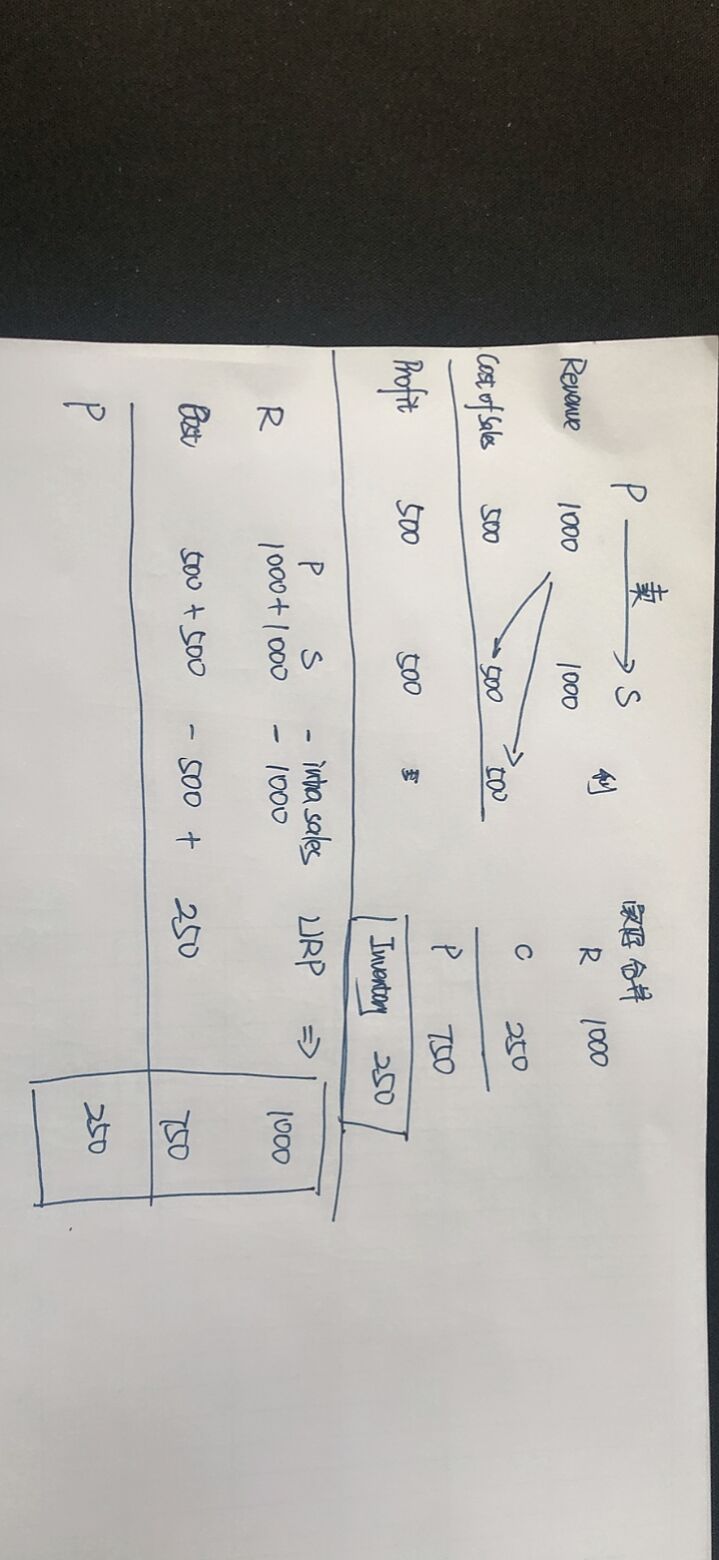 P 卖 S
Revenue 1000 1000 剩 R 1000
Cost of Sales 500 500 500 C 250
Profit 500 500 P 750
Inventory 250
P S - intra sales URP ⇒
R 1000 + 1000 - 1000 1000
Cost 500 + 500 - 500 + 250 750
P 250